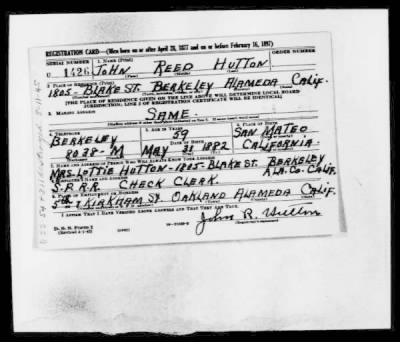 REGISTRATION CARD—(Men born on or after April 28, 1877 and on or before February 16, 1897)
SERIAL NUMBER 1. NAME (Print) ORDER NUMBER
U 1426 JOHN REED HUTTON
(First) (Middle) (Last)
2. PLACE OF RESIDENCE (Print)
1805- BLAKE ST. BERKELEY ALAMEDA CALIF.
[THE PLACE OF RESIDENCE GIVEN ON THE LINE ABOVE WILL DETERMINE LOCAL BOARD
JURISDICTION; LINE 2 OF REGISTRATION CERTIFICATE WILL BE IDENTICAL]
3. MAILING ADDRESS
SAME.
4. TELEPHONE 5. AGE IN YEARS 6. PLACE OF BIRTH
BERKELEY 59 SAN MATEO
DATE OF BIRTH
8038-M MAY 31 1882 CALIFORNIA.
7. NAME AND ADDRESS OF PERSON WHO WILL ALWAYS KNOW YOUR ADDRESS
MRS. LOTTIE HUTTON-1805-BLAKE ST. BERKELEY
ALA. CO. CALIF.
8. EMPLOYER'S NAME AND ADDRESS
S.P.R.R. CHECK CLERK.
9. PLACE OF EMPLOYMENT OR BUSINESS
5TH & KIRKHAM ST. OAKLAND ALAMEDA CALIF.
I AFFIRM THAT I HAVE VERIFIED ABOVE ANSWERS AND THAT THEY ARE TRUE.
John R. Hutton
D. S. S. Form 1
(Revised 4-1-42) (over)
(Registrant's signature)